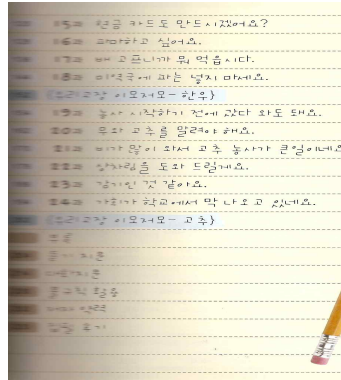 15과 현금 카드도 만드시겠어요?
16과 파마하고 싶어요.
17과 배 고프니까 뭐 먹읍시다.
18과 미역국에 파는 넣지 마세요.
{우리고장 이모저모 - 한우}
19과 농사 시작하기 전에 갔다 와도 돼요.
20과 무와 고추를 말려야 해요.
21과 비가 많이 와서 고추 농사가 큰일이네요
22과 상차림을 도와 드릴게요.
23과 감기인 것 같아요.
24과 가희가 학교에서 막 나오고 있네요.
{우리고장 이모저모 - 고추}
부록
듣기 지문